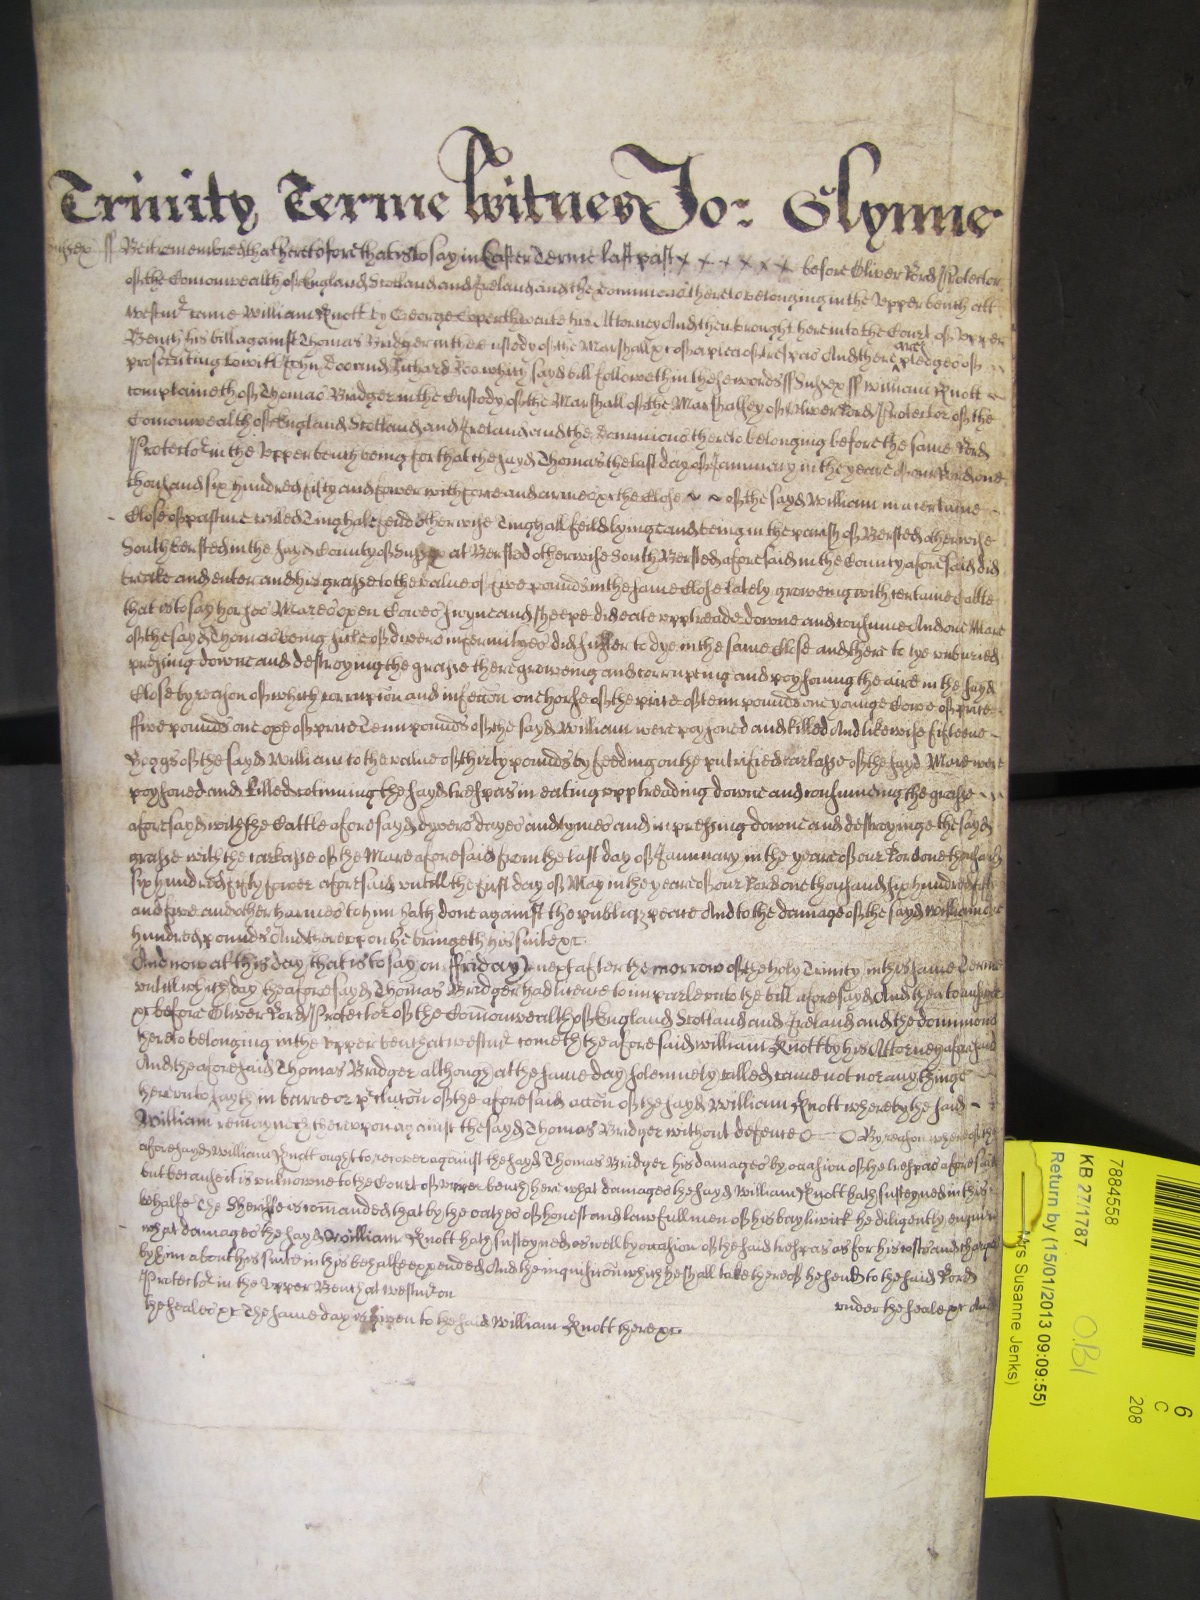 Trinity Terme Witnes Jo: Glynne
Sussex ss Be it remembred that heretofore that is to say in Easter Terme last past x x x x x x before Oliver Lord Protector
of the Comonwealth of England Scotland and Ireland and the Dominions thereto belonging in the Upper bench att
Westmr came William Knott by George Coperthwaite his Attorney And then brought here into the Court of Upper
Bench his bill against Thomas Bridger in the Custody of the Marshall &c of a plea of trespas And there are pledges of
prosecuting to witt John Doo and Richard Roo which sayd bill followeth in these words ss Sussex ss William Knott
complaineth of Thomas Bridger in the Custody of the Marshall of the Marshalsey of Oliver Lord Protector of the
Comonwealth of England Scotland and Ireland and the Dominions thereto belonging before the same Lord
Protector in the Upper bench being for that the sayd Thomas the last day of January in the yeare of our Lord one
thousand six hundred fifty and fower with force and armes &c the Close of the sayd William in a certaine
Close of pasture called Tinghale feild otherwise Tinghall feild lyinge and being in the parish of Bersted otherwise
South bersted in the sayd County of Sussex at Bersted otherwise South Bersted aforesaid in the County aforesaid did
breake and enter and his grasse to the value of five pounds in the same Close lately groweing with certaine Cattle
that is to say horses Mares oxen Cowes swyne and sheepe did eate upp treade downe and consume And one Mare
of the sayd Thomas being sicke of divers infirmityes did suffer to dye in the same Close and there to lye unburied
pressing downe and destroying the grasse there groweing and corrupting and poysoning the aire in the sayd
Close by reason of which corrupcon and infeccon one horse of the price of tenn pounds one younge Cowe of price
ffive pounds one oxe of price Tenn pounds of the sayd William were poysoned and killed And likewise fifteene
Hoggs of the sayd William to the value of thirty pounds by feeding on the putrified carkasse of the sayd Mare were
poysoned and killed cotinuing the sayd trespas in eating upp treading downe and consumeing the grasse
aforesayd with the Cattle aforesayd dyvers dayes and tymes and in pressing downe and destroyinge the sayd
grasse with the carkasse of the Mare aforesaid from the last day of January in the yeare of our Lord one thousand
six hundred fifty fower aforesaid untill the first day of May in the yeare of our Lord one thousand six hundred fifty
and five and other harmes to him hath done against the publiq peace And to the damage of the sayd William one
hundred pounds And thereupon he bringeth his suite &c
And now at this day that is to say on ffriday next after the morrow of the holy Trinity in this same Terme
untill which day the aforesayd Thomas Bridger had licence to imparle unto the bill aforesayd And then to answere
&c before Oliver Lord Protector of the Comonwealth of England Scotland and Ireland and the dominions
thereto belonging in the Upper bench at westmr cometh the aforesaid William Knott by his Attorney aforesaid
And the aforesaid Thomas Bridger although at the same day solemnely called came not nor any thinge
hereunto sayth in barre or preclucon of the aforesaid accon of the sayd William Knott whereby the said
William remayneth thereupon against the sayd Thomas Bridger without defence By reason whereof the
aforesayd William Knott ought to recover against the sayd Thomas Bridger his damages by occasion of the trespas aforesaid
but because it is unknowne to the Court of upper bench here what damages the sayd William Knott hath susteyned in this
behalfe The Sheriffe is comanded that by the oathes of honest and lawfull men of his bayliwick he diligently enquire
what damages the sayd William Knott hath susteyned as well by occasion of the said trespas as for his costs and charges
by him about his suite in this behalfe expended And the inquisicon which he shall take thereof he send to the said Lord
Protector in the Upper Bench at westmr on under the seale &c And
the seales &c The same day is given to the said William Knott there &c
7884558
KB 27/1787
Return by (15/01/2013 09:09:55)
Mrs Susanne Jenks)
O.Bl
6
C
208